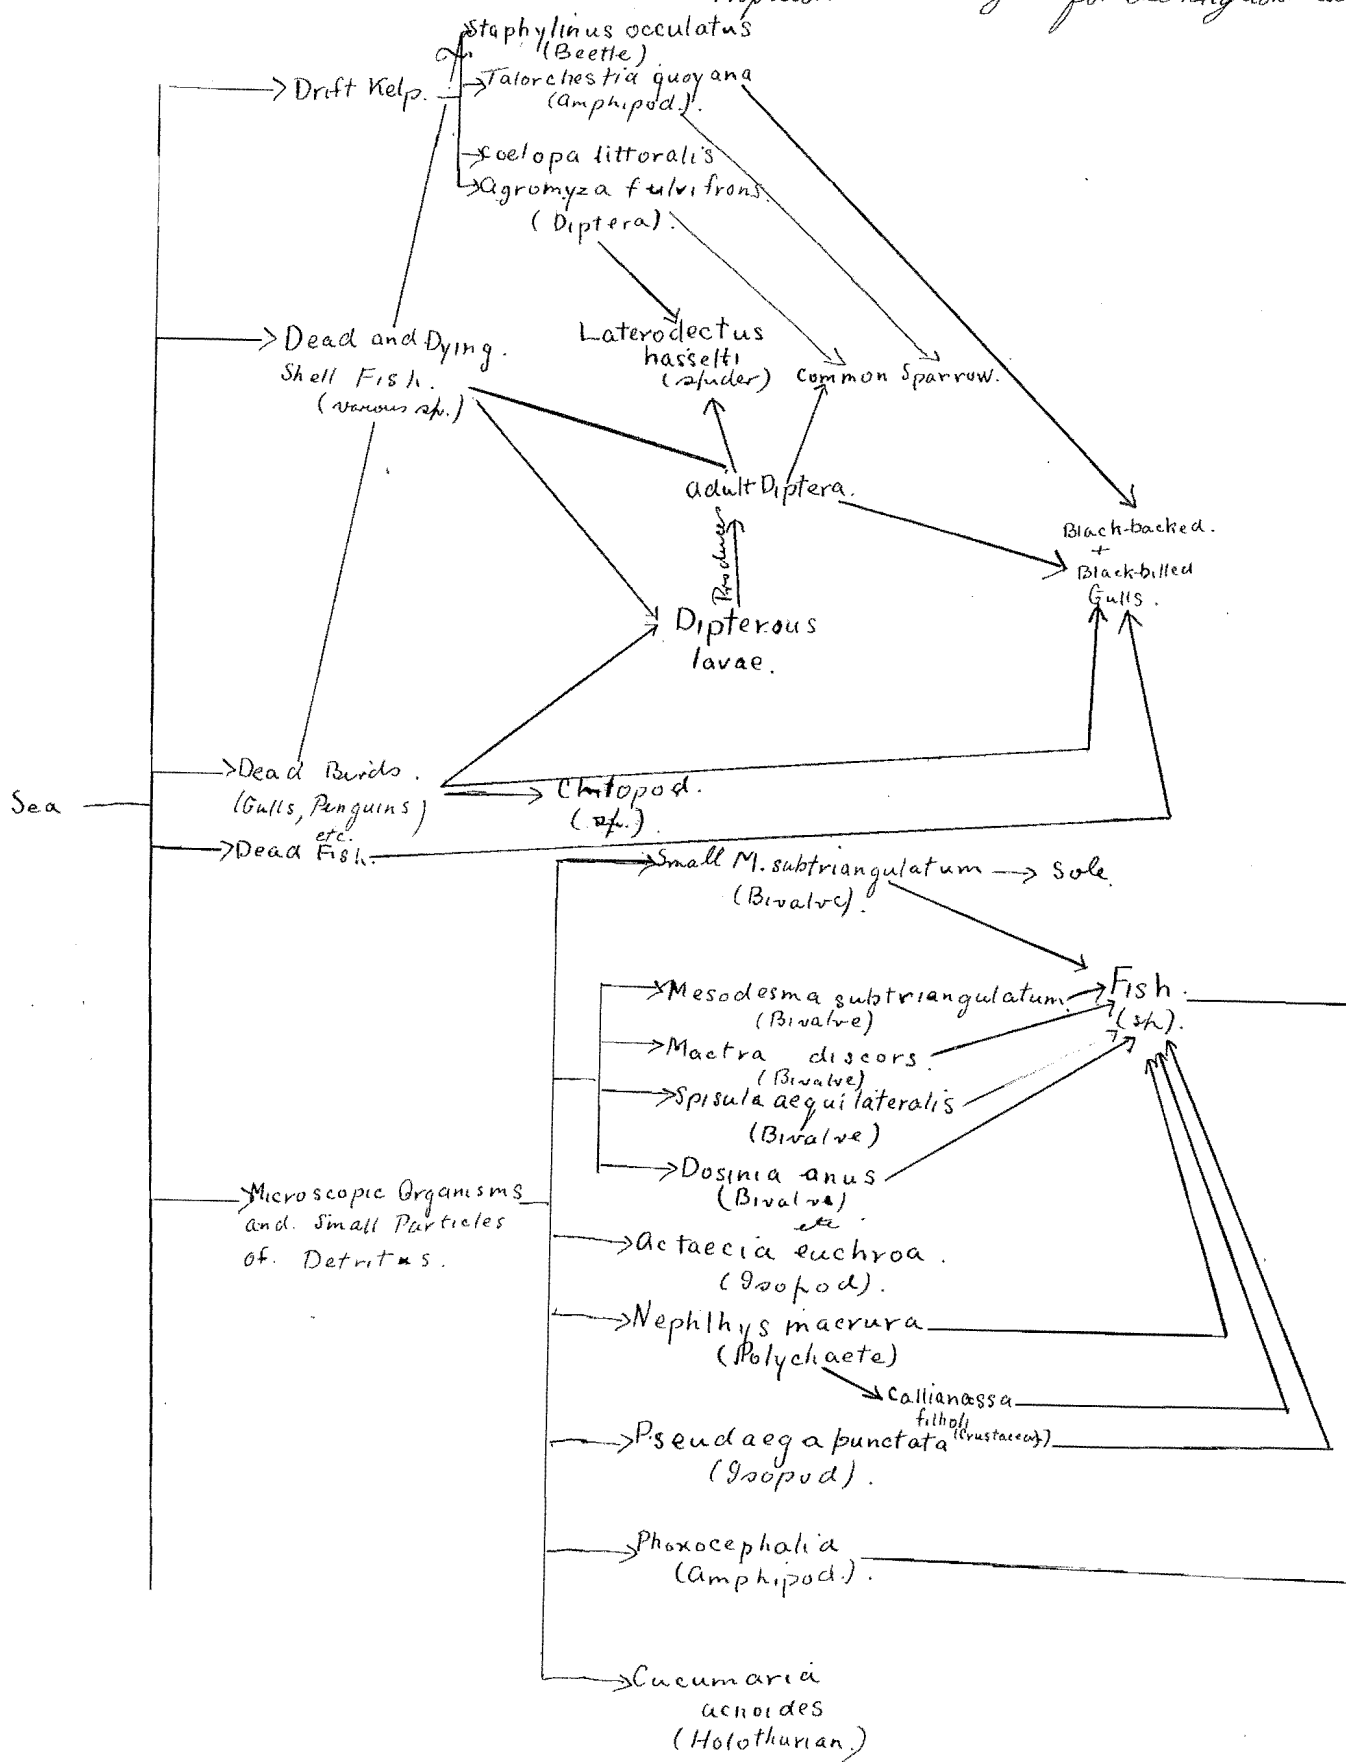 for
Staphylinus occulatus
(Beetle)
Drift Kelp.
Talorchestia quoyana
(Amphipod.).
Coelopa littoralis
Agromyza fulvifrons.
(Diptera).
Dead and Dying.
Shell Fish.
(various sp.)
Laterodectus
hasselti
(spider)
Common Sparrow.
Adult Diptera.
Produces
Black-backed.
+
Black-billed
Gulls.
Dipterous
lavae.
Sea
Dead Birds.
(Gulls, Penguins)
etc.
Dead Fish.
(sp.).
Small M. subtriangulatum
(Bivalve).
Sole.
Fish.
(sp).
Mesodesma subtriangulatum.
(Bivalve)
Mactra discors.
(Bivalve)
Spisula aequilateralis
(Bivalve)
Dosinia anus
(Bivalve)
etc.
Microscopic Organisms
and. Small Particles
of. Detritus.
Actaecia euchroa.
(Isopod).
Nephthys macrura
(Polychaete)
Callianassa
filholi
(Crustacea)
Pseudaega punctata
(Isopod).
Phoxocephalia
(Amphipod.).
Cucumaria
acnoides
(Holothurian.)